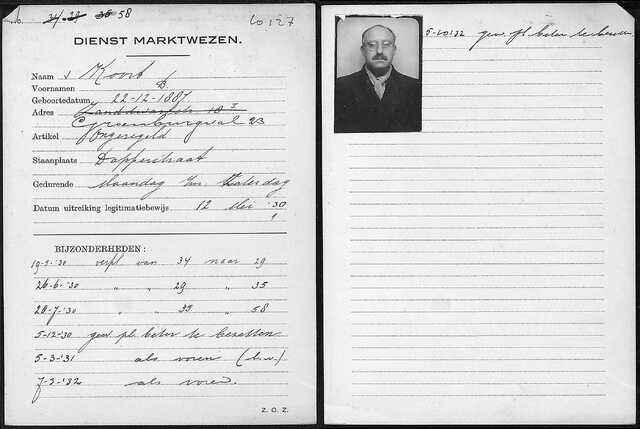 No. 34 29 35 58
60127
DIENST MARKTWEZEN.
Naam s Koorb
Voornamen D
Geboortedatum 22-12-1887
Adres Zandstraat 18 I
Groenburgwal 23
Artikel Ongeregeld
Staanplaats Dapperstraat
Gedurende Maandag t/m Zaterdag
Datum uitreiking legitimatiebewijs 12 Mei '30
BIJZONDERHEDEN:
19-5-'30 verpl van 34 naar 29
26-6-'30 " " 29 " 35
28-7-'30 " " 35 " 58
5-12-'30 gew. pl. beter te bezetten
5-3-'31 als voren
7-3-'32 als voren.
Z. O. Z.
5-10-'32 gew. pl. beter te bezetten